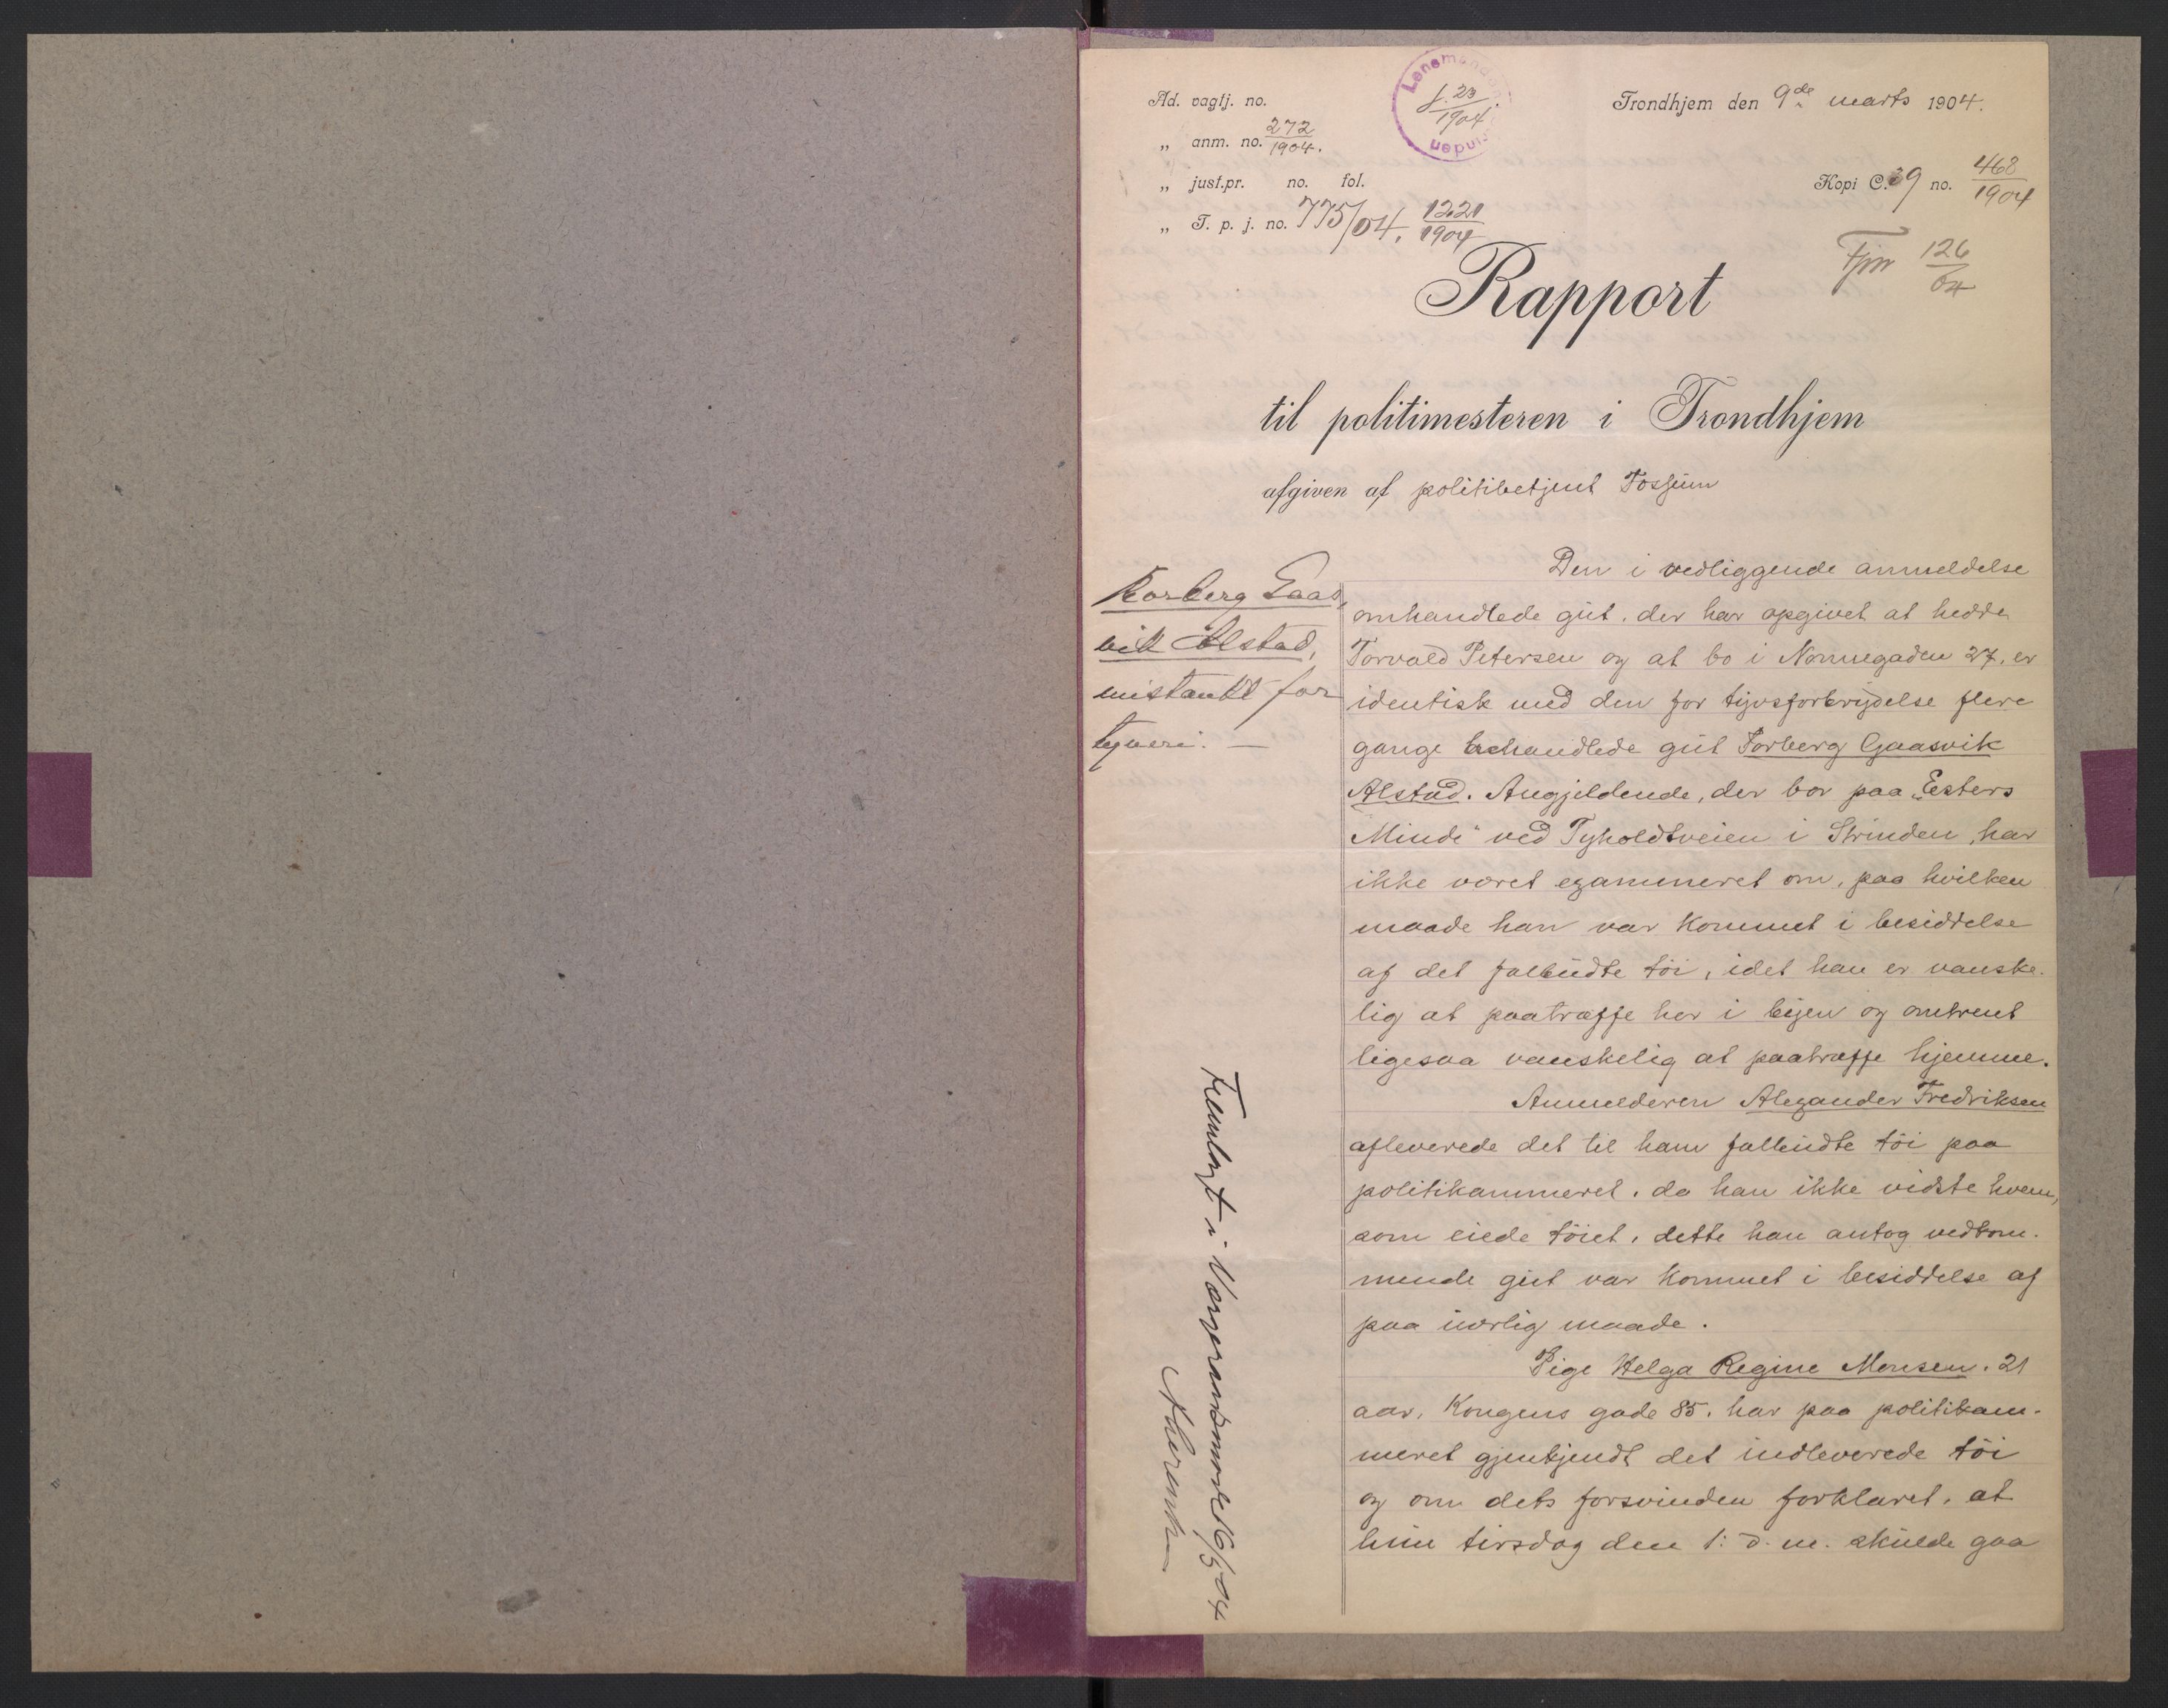 Ad. vagtj. no.
„ anm. no. 272/1904.
„ just.pr. no. fol.
„ T. p. j. no. 775/04. 1221/1904
Lensmanden
j. 23/1904
Trondhjem den 9de marts 1904.
Kopi C. 39 no. 468/1904
126/04
Rapport
til politimesteren i Trondhjem
afgiven af politibetjent Fosjum
Torberg Gaas
vik Alstad,
mistænkt for
tyveri. —
Den i vedliggende anmeldelse
omhandlede gut, der har opgivet at hedde
Torvald Petersen og at bo i Nonnegaden 27, er
identisk med den for tyvsforbrydelse flere
gange behandlede gut Torberg Gaasvik
Alstad. Angjeldende, der bor paa „Esters
Minde“ ved Tyholdtveien i Strinden, har
ikke været examineret om, paa hvilken
maade han var kommet i besiddelse
af det falbudte töi, idet han er vanske-
lig at paatræffe her i byen og omtrent
ligesaa vanskelig at paatræffe hjemme.
Anmelderen Alexander Fredriksen
afleverede det til ham falbudte töi paa
politikammeret, da han ikke vidste hvem,
som eiede töiet, dette han antog vedkom-
mende gut var kommet i besiddelse af
paa uærlig maade.
Pige Helga Regine Monsen, 21
aar, Kongens gade 85, har paa politikam-
meret gjenkjendt det indleverede töi
og om dets forsvinden forklaret, at
hun tirsdag den 1: d. m. skulde gaa
Fremlagt i Værgeraadsmøde 16/3 04